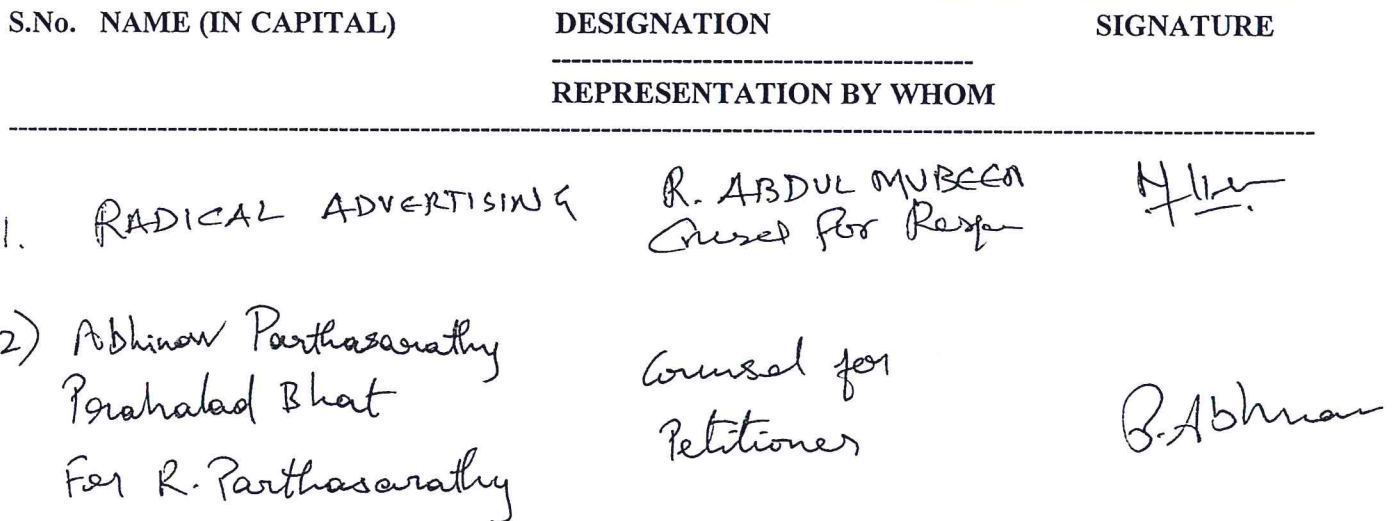 S.No. NAME (IN CAPITAL) DESIGNATION SIGNATURE
REPRESENTATION BY WHOM
1. RADICAL ADVERTISING R. ABDUL MUBEEN
Counsel for Respn
2) Abhinav Parthasarathy
Prahalad Bhat
For R. Parthasarathy
Counsel for
Petitioner
P. Abhinav